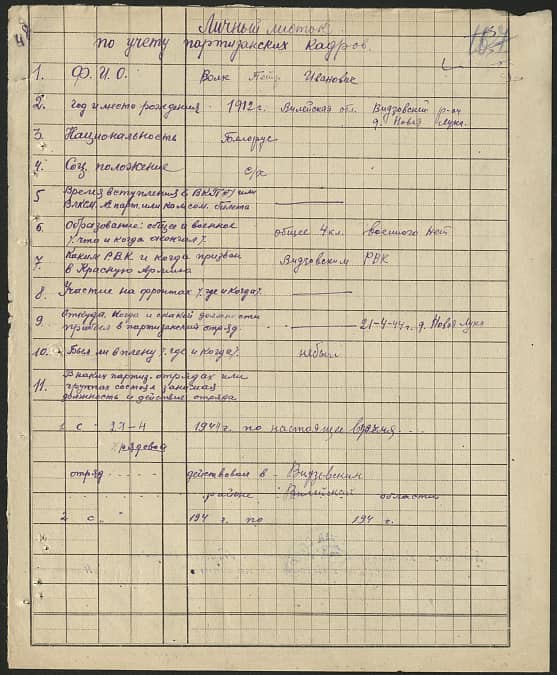 Личный листок
по учету партизанских кадров.
1. Ф. И. О. Волк Петр Иванович
2. Год и место рождения 1912 г. Вилейская обл. Видзовский р-он
д. Новая Лука
3. Национальность Белорус
4. Соц. положение с/х
5 Время вступления в ВКП(б) или
ВЛКСМ. № парт. или комсом. билета
6 Образование: общее и военное
/. что и когда окончил /. общее 4 кл. военного нет
7. Каким РВК и когда призван
в Красную Армию Видзовским РВК
8. Участие на фронтах /. где и когда /.
9. Откуда, когда и с какой должности
прибыл в партизанский отряд. 21-4-44 г. д. Новая Лука
10. Был ли в плену /. где и когда /. не был
11. В каких партиз. отрядах или
группах состоял занимая
должность и действия отряда
1 с 21-4 1944 г. по настоящее время
рядовой
отряд действовал в Видзовским
районе Вилейской области
2 с " 194 г. по 194 г.